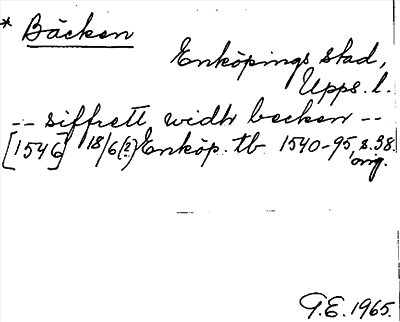 * Bäcken
Enköpings stad,
Upps. l.
-- siffrett widh becken --
[1546] 18/6(?) Enköp. tb 1540-95, s. 38.
orig.
G.E. 1965.